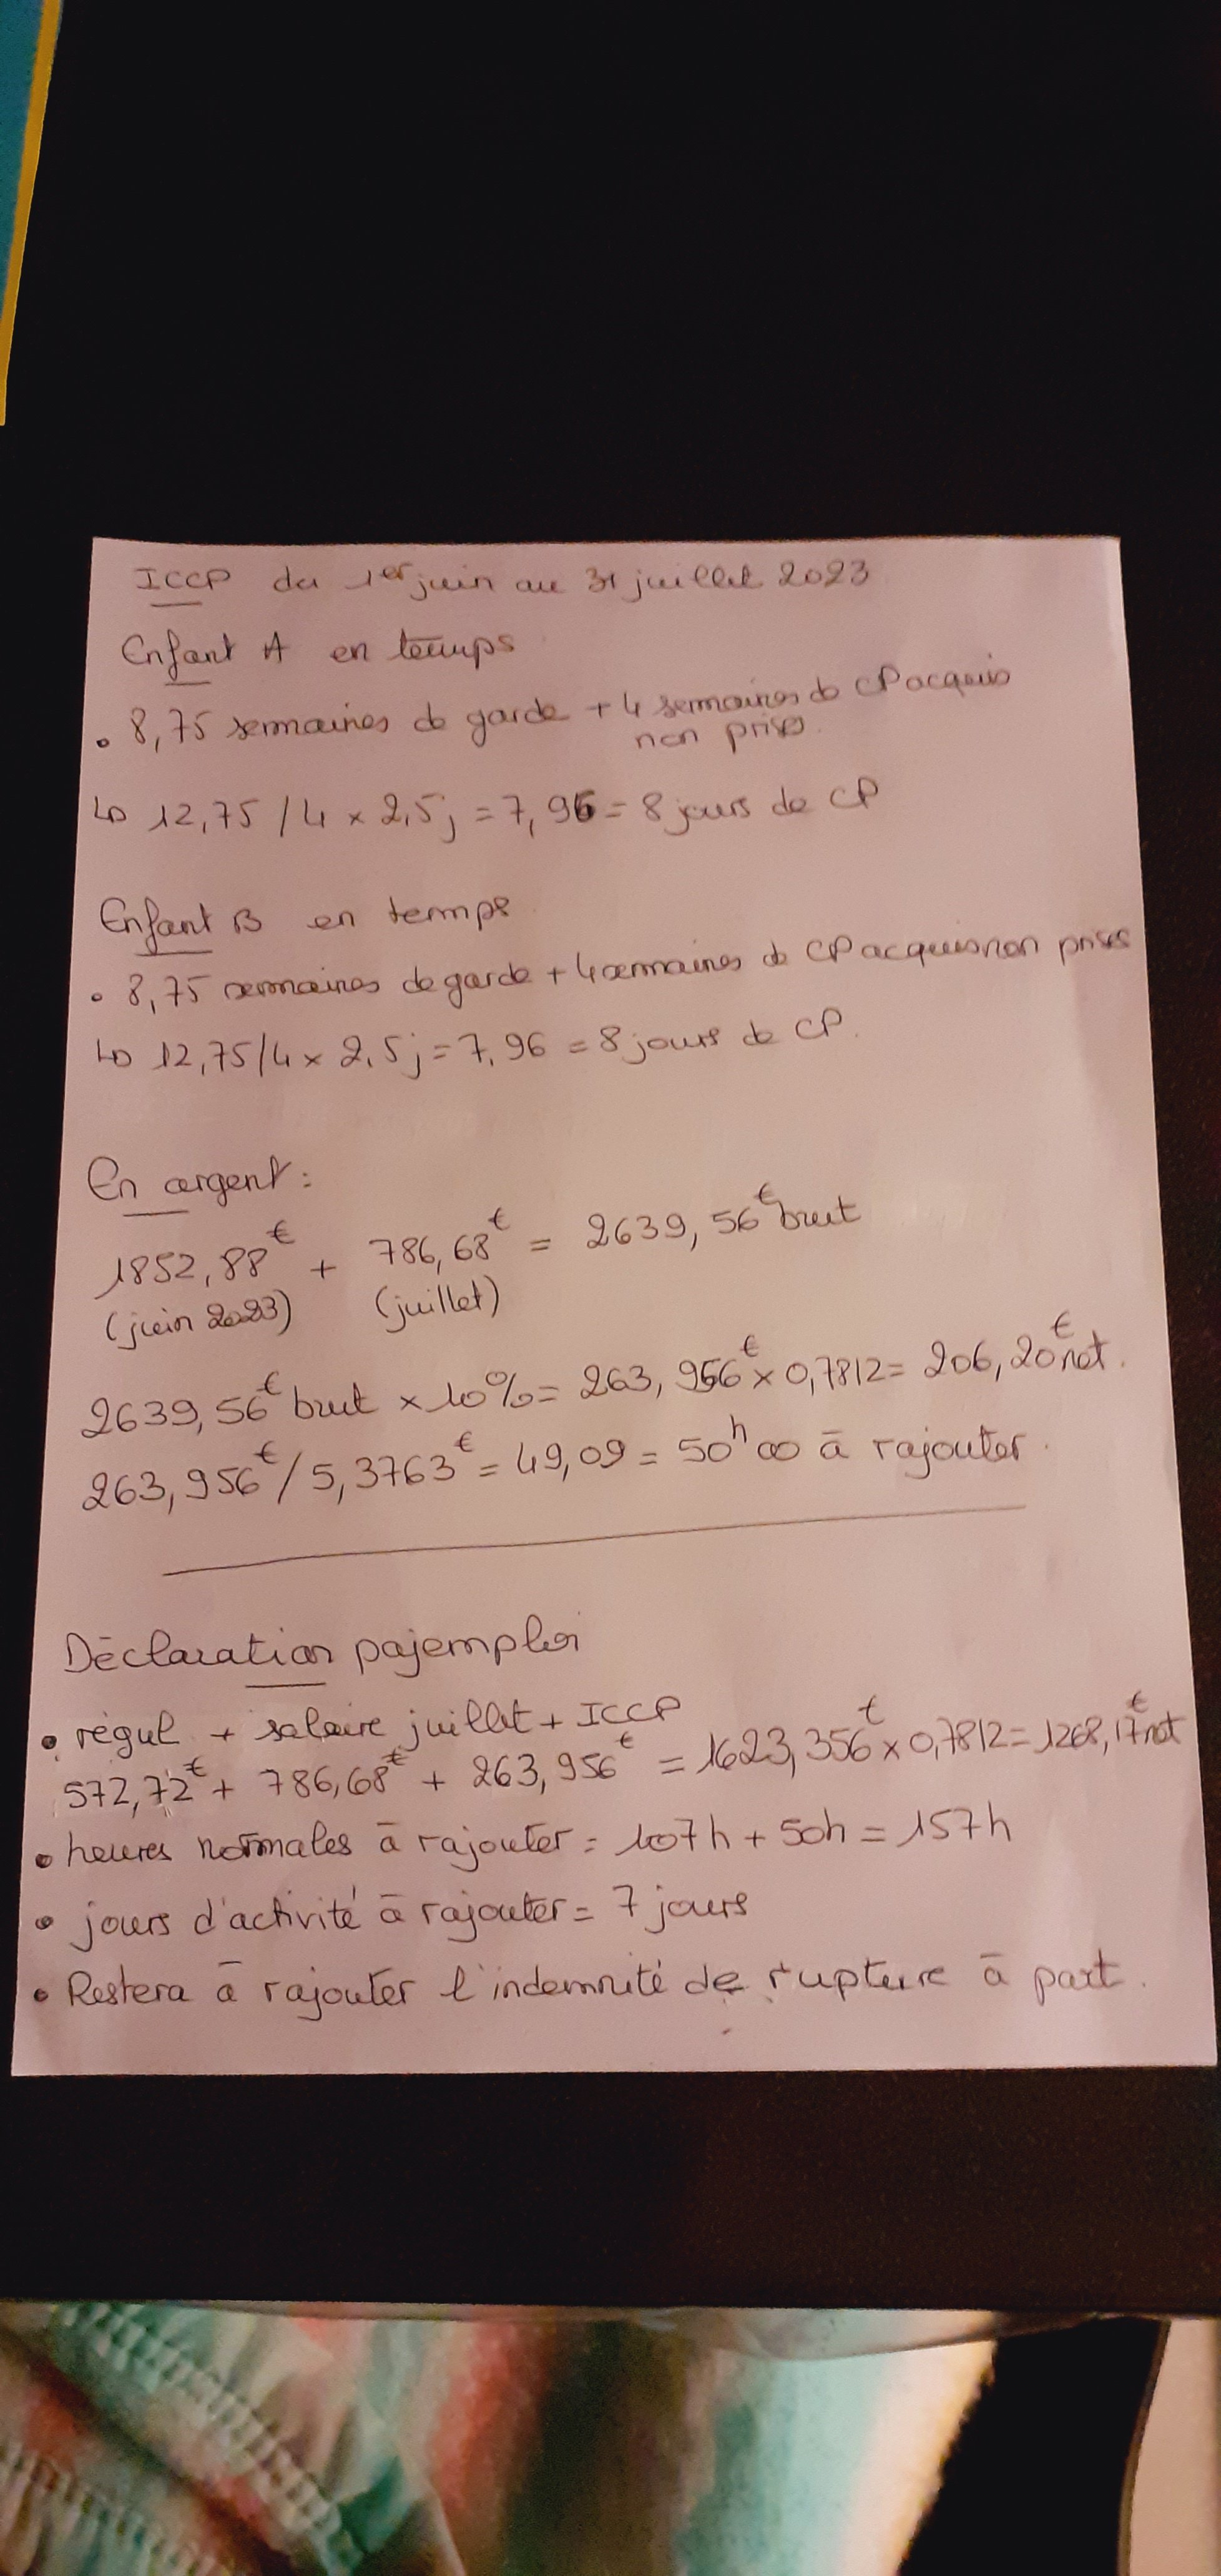 ICCP du 1er juin au 31 juillet 2023
Enfant A en temps
• 8,75 semaines de garde + 4 semaines de CP acquis
non prises.
↳ 12,75 / 4 x 2,5j = 7,96 = 8 jours de CP
Enfant B en temps
• 8,75 semaines de garde + 4 semaines de CP acquis non prises
↳ 12,75/4 x 2,5j = 7,96 = 8 jours de CP.
En argent :
1852,88€ + 786,68€ = 2639,56€ brut
(juin 2023) (juillet)
2639,56€ brut x 10% = 263,956€ x 0,7812 = 206,20€ net.
263,956€ / 5,3763€ = 49,09 = 50h00 à rajouter.
Déclaration pajemploi
• régul + salaire juillet + ICCP
572,72€ + 786,68€ + 263,956€ = 1623,356€ x 0,7812 = 1268,17€ net
• heures normales à rajouter = 107h + 50h = 157h
• jours d'activité à rajouter = 7 jours
• Restera à rajouter l'indemnité de rupture à part.